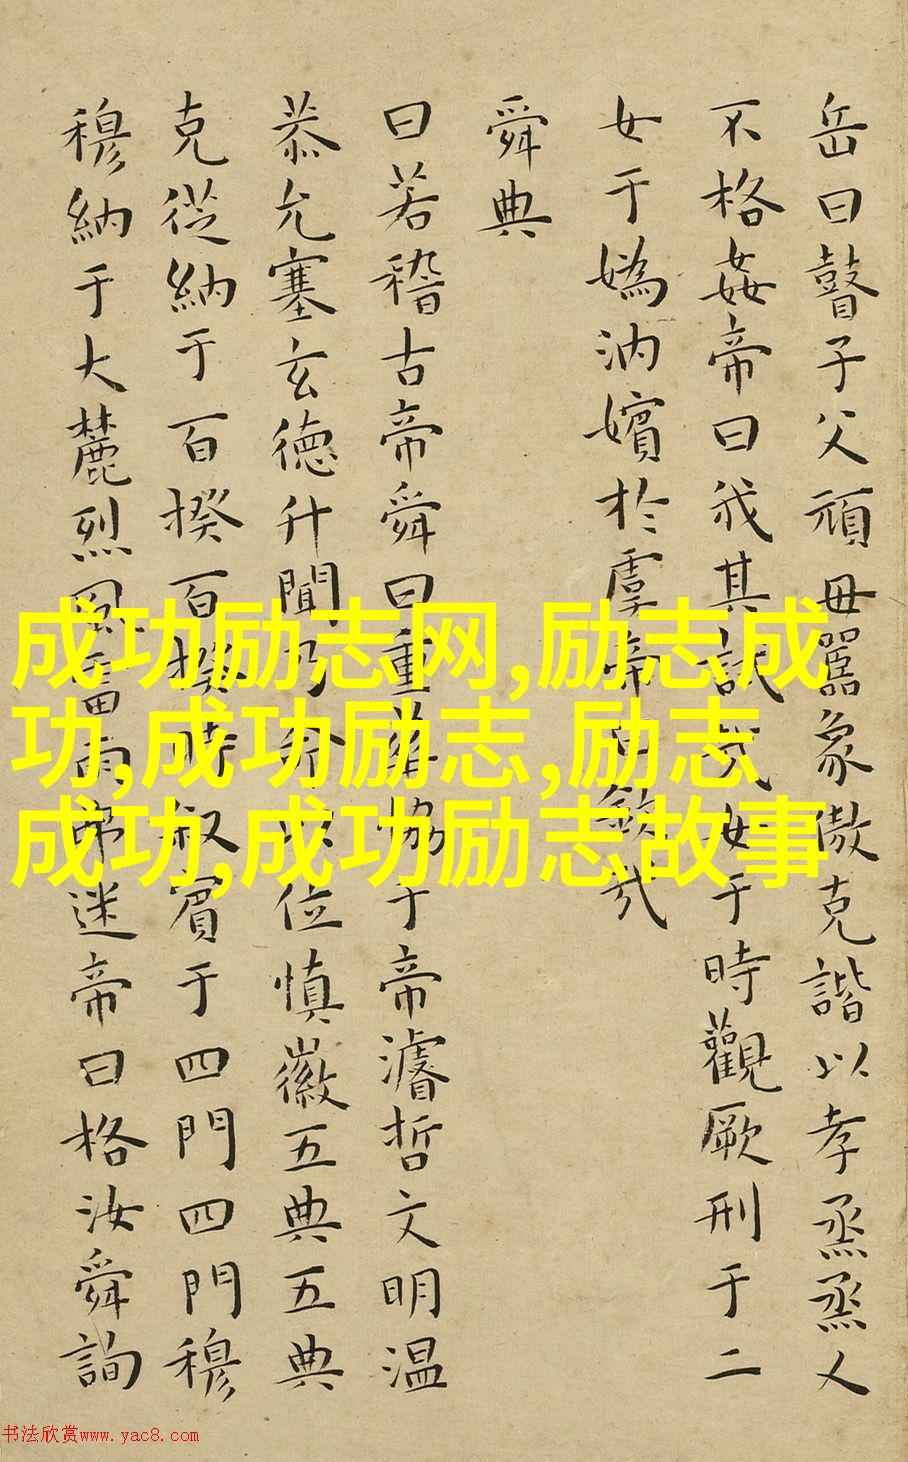 岳曰瞽子父頑毋嚚象傲克諧以孝烝烝乂
不格姦帝曰我其試哉女于時觀厥刑于二
女于媯汭嬪於虞帝曰欽哉
舜典
曰若稽古帝舜曰重華協于帝濬哲文明温
恭允塞玄徳升聞乃命以位慎徽五典五典
克從納于百揆百揆時叙賓于四門四門穆
穆納于大麓烈風雷雨弗迷帝曰格汝舜詢
成功励志网,励志成
功,成功励志,励志
成功,成功励志故事
书法欣赏www.yac8.com